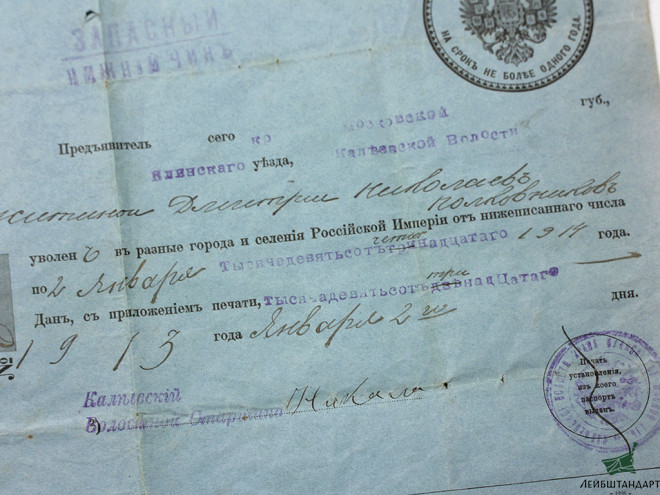 ЗАПАСНЫЙ
НИЖНІЙ ЧИНЪ
НА СРОКЪ НЕ БОЛѢЕ ОДНОГО ГОДА.
Предъявитель сего Московской губ.,
Клинскаго уѣзда, Калѣевской Волости
Дмитрій Николаевъ
Колковниковъ
уволенъ въ разные города и селенія Россійской Имперіи отъ нижеписаннаго числа
четыр
по 2 Января Тысячадевятьсотътринадцатаго 1914 года.
три
Данъ, съ приложеніемъ печати, тысячадевятьсотъдвѣнадцатаго
1913 года Января 2го дня.
№
Калѣевскій
Волостной Старшина
Печать
установленія,
изъ коего
паспортъ
выданъ.
ЛЕЙБШТАНДАРТ